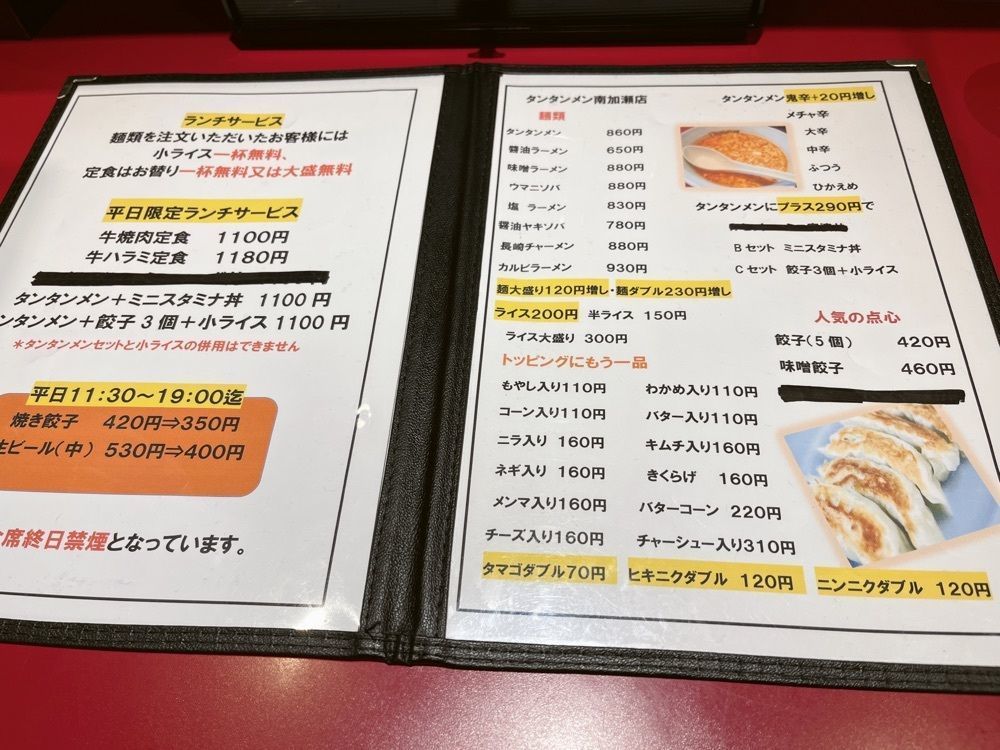 ランチサービス
麺類を注文いただいたお客様には
小ライス一杯無料、
定食はお替り一杯無料又は大盛無料
平日限定ランチサービス
牛焼肉定食 1100円
牛ハラミ定食 1180円
タンタンメン＋ミニスタミナ丼 1100円
ンタンメン＋餃子3個＋小ライス 1100円
＊タンタンメンセットと小ライスの併用はできません
平日11:30～19:00迄
焼き餃子 420円⇒350円
生ビール(中) 530円⇒400円
席終日禁煙となっています。
タンタンメン南加瀬店
麺類
タンタンメン 860円
醤油ラーメン 650円
味噌ラーメン 880円
ウマニソバ 880円
塩 ラーメン 830円
醤油ヤキソバ 780円
長崎チャーメン 880円
カルビラーメン 930円
麺大盛り120円増し・麺ダブル230円増し
ライス200円 半ライス 150円
ライス大盛り 300円
トッピングにもう一品
もやし入り110円 わかめ入り110円
コーン入り110円 バター入り110円
ニラ入り 160円 キムチ入り 160円
ネギ入り 160円 きくらげ 160円
メンマ入り160円 バターコーン 220円
チーズ入り160円 チャーシュー入り310円
タマゴダブル70円 ヒキニクダブル 120円 ニンニクダブル 120円
タンタンメン鬼辛+20円増し
メチャ辛
大辛
中辛
ふつう
ひかえめ
タンタンメンにプラス290円で
Bセット ミニスタミナ丼
Cセット 餃子3個＋小ライス
人気の点心
餃子(5個) 420円
味噌餃子 460円